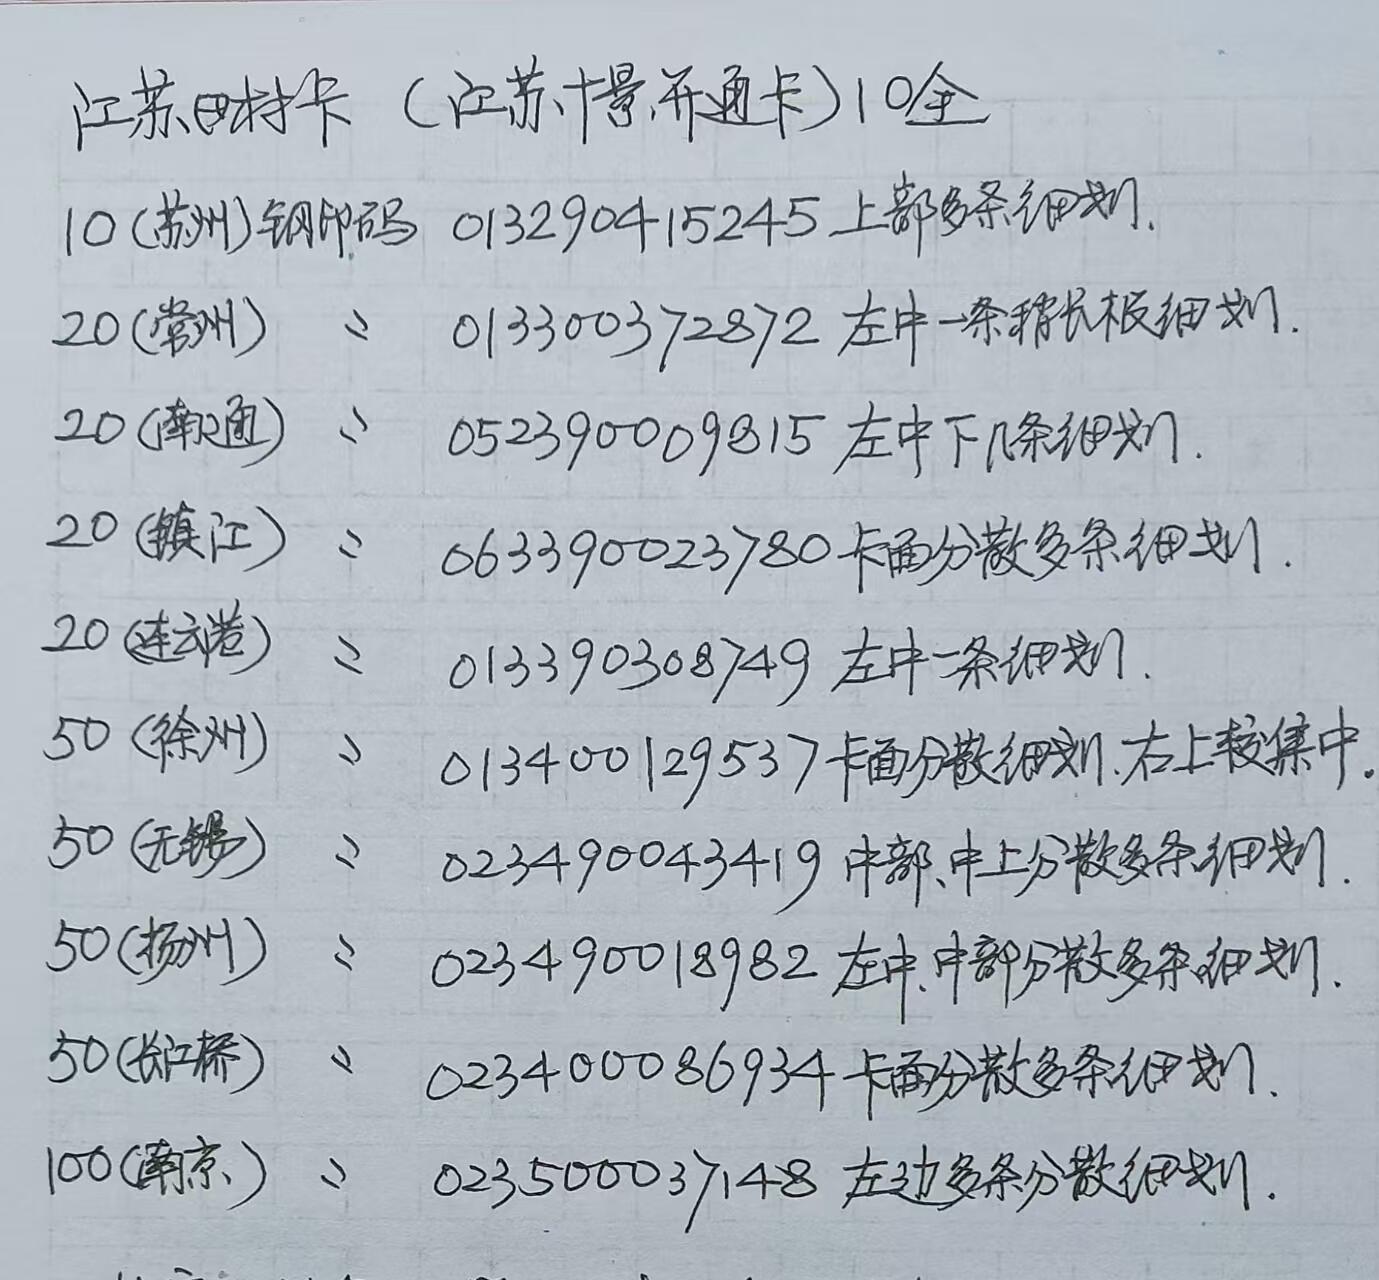 江苏田村卡（江苏十景开通卡）10全
10（苏州）钢印码 013290415245 上部多条细划.
20（常州） 〃 013300372872 左中一条稍长极细划.
20（南通） 〃 052390009815 左中下几条细划.
20（镇江） 〃 063390023780 卡面分散多条细划.
20（连云港） 〃 013390308749 左中一条细划.
50（徐州） 〃 013400129537 卡面分散细划.右上较集中.
50（无锡） 〃 023490043419 中部、中上分散多条细划.
50（扬州） 〃 023490018982 左中、中部分散多条细划.
50（长江桥） 〃 023400086934 卡面分散多条细划.
100（南京） 〃 023500037148 左边多条分散细划.